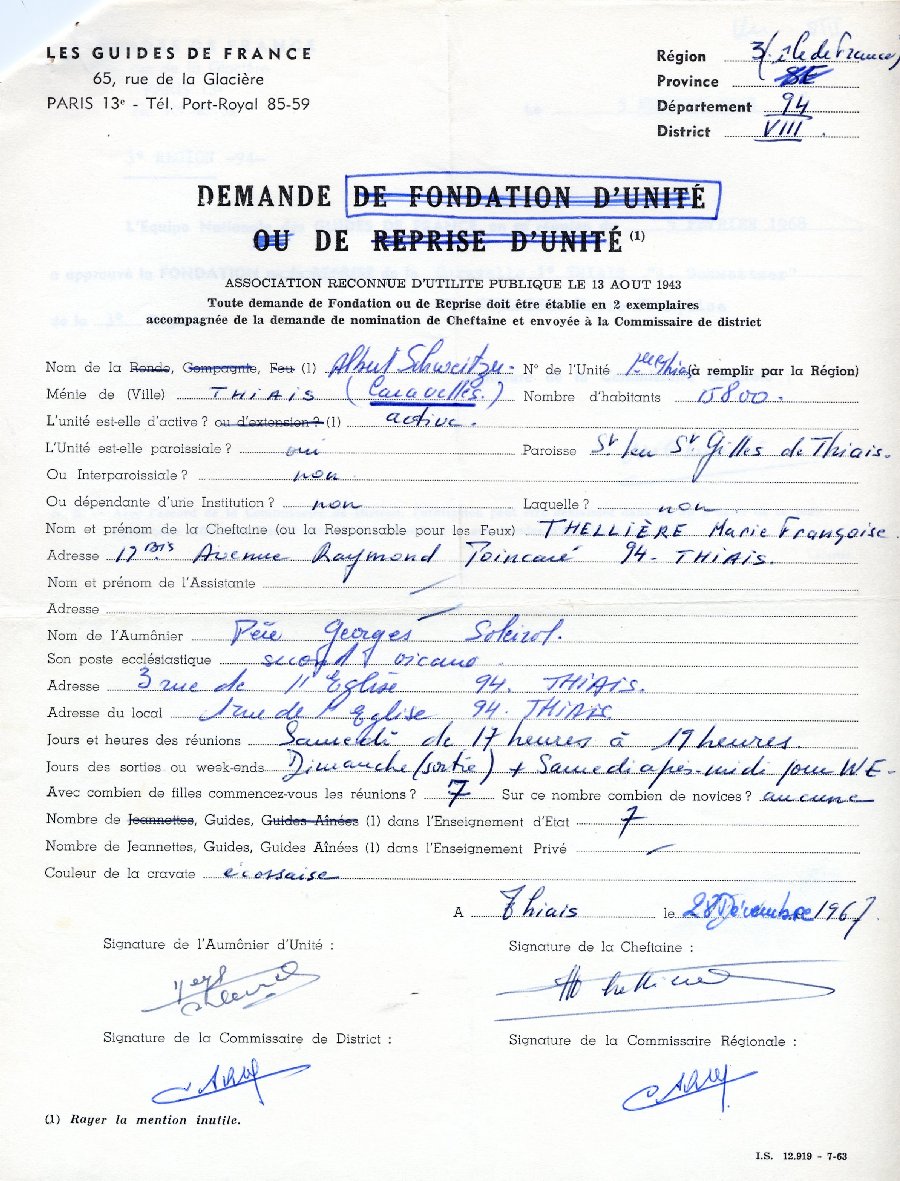 LES GUIDES DE FRANCE
65, rue de la Glacière
PARIS 13e - Tél. Port-Royal 85-59
Région 3 (île de France)
Province
Département 94
District VIII.
DEMANDE DE FONDATION D'UNITÉ
OU DE REPRISE D'UNITÉ (1)
ASSOCIATION RECONNUE D'UTILITE PUBLIQUE LE 13 AOUT 1943
Toute demande de Fondation ou de Reprise doit être établie en 2 exemplaires
accompagnée de la demande de nomination de Cheftaine et envoyée à la Commissaire de district
Nom de la Ronde, Compagnie, Feu (1) Albert Schweitzer. N° de l'Unité Thiais (à remplir par la Région)
Ménie de (Ville) THIAIS (Caravelles.) Nombre d'habitants 15800.
L'unité est-elle d'active ? ou d'extension ? (1) active.
L'Unité est-elle paroissiale ? oui Paroisse St leu St Gilles de Thiais.
Ou Interparoissiale ? non
Ou dépendante d'une Institution ? non Laquelle ? non
Nom et prénom de la Cheftaine (ou la Responsable pour les Feux) THELLIÈRE Marie Françoise.
Adresse 17 bis Avenue Raymond Poincaré 94. THIAIS.
Nom et prénom de l'Assistante
Adresse
Nom de l'Aumônier Père Georges
Son poste ecclésiastique second vicaire
Adresse 3 rue de l'Eglise 94. THIAIS.
Adresse du local 1 rue de l'Eglise 94. THIAIS
Jours et heures des réunions Samedi de 17 heures à 19 heures.
Jours des sorties ou week-ends Dimanche (sortie) + Samedi après-midi pour WE-
Avec combien de filles commencez-vous les réunions ? 7 Sur ce nombre combien de novices ? aucune
Nombre de Jeannettes, Guides, Guides Aînées (1) dans l'Enseignement d'Etat 7
Nombre de Jeannettes, Guides, Guides Aînées (1) dans l'Enseignement Privé
Couleur de la cravate écossaise
A Thiais le 28 Décembre 1967.
Signature de l'Aumônier d'Unité :
Signature de la Cheftaine :
Signature de la Commissaire de District :
Signature de la Commissaire Régionale :
(1) Rayer la mention inutile.
I.S. 12.919 - 7-63